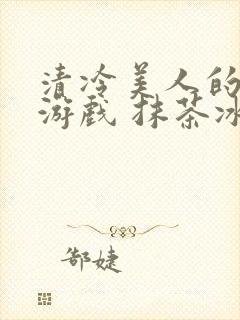 清冷美人的
游戏 抹茶冰
郜婕